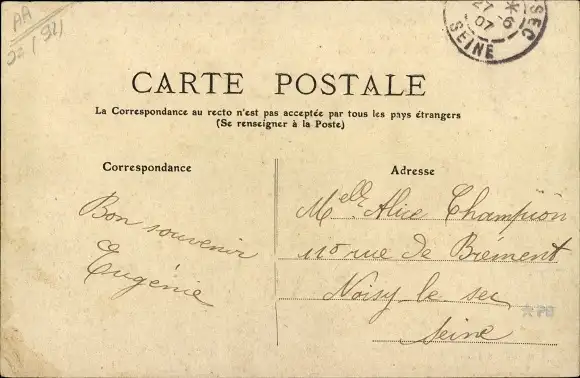 AA
SEC
27 -6
07
SEINE
CARTE POSTALE
La Correspondance au recto n'est pas acceptée par tous les pays étrangers
(Se renseigner à la Poste)
Correspondance
Adresse
Bon souvenir
Eugénie
Melle Alice Champion
110 rue de Brément
Noisy le sec
Seine